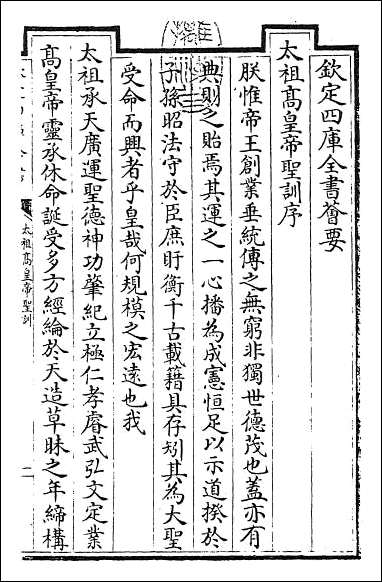 欽定四庫全書薈要
太祖高皇帝聖訓序
朕惟帝王創業垂統傳之無窮非獨世德茂也蓋亦有
典則之貽焉其運之一心播為成憲恒足以示道揆於
子孫昭法守於臣庶盱衡千古載籍具存矧其為大聖
受命而興者乎皇哉何規模之宏遠也我
太祖承天廣運聖德神功肇紀立極仁孝睿武弘文定業
高皇帝靈承休命誕受多方經綸於天造草昧之年締構
太祖高皇帝聖訓
一